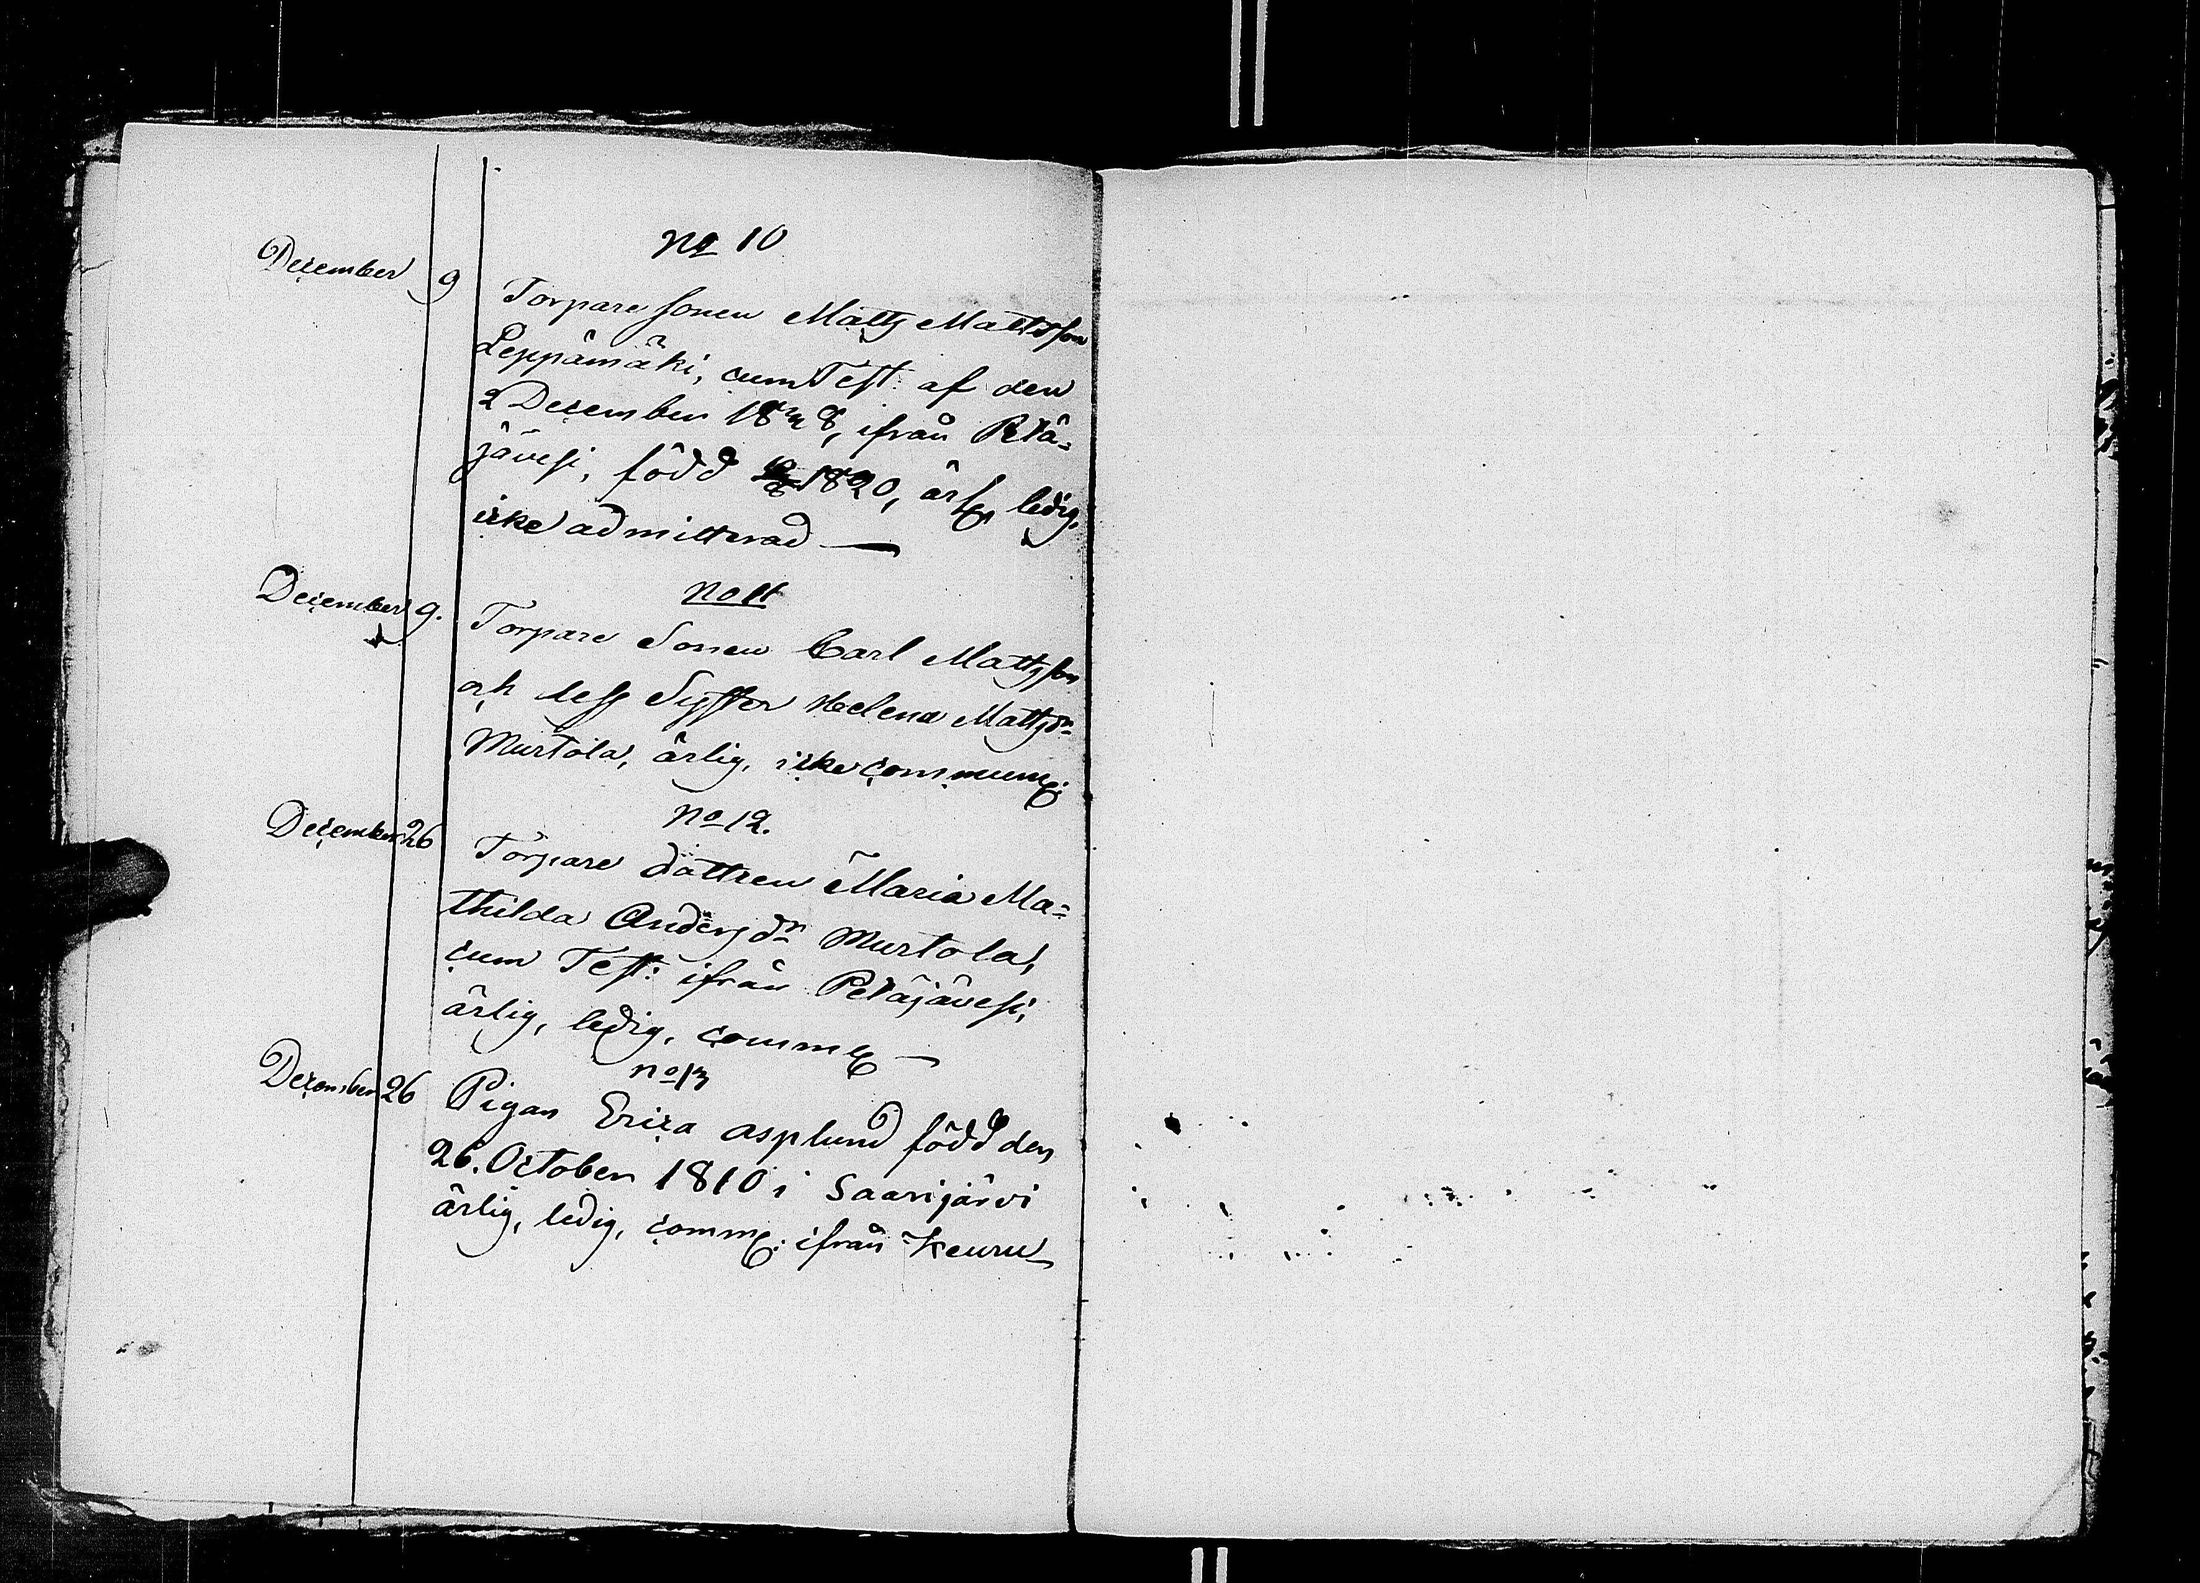 No 10
December 9 Torpare sonen Matts Mattsson
Leppämäki, cum Test: af den
2 December 1838, ifrån Petä=
jävesi, född 1820, ärl. ledig,
icke admitterad —
No 11
December 9. Torpare Sonen Carl Mattsson
och dess Syster Helena Mattsdr
Murtola, ärlig, icke commun.
No 12.
December 26 Torpare dottren Maria Ma=
thilda Andersdr Murtola,
cum Test: ifrån Petäjävesi,
ärlig, ledig, comm. —
No 13
December 26 Pigan Erica Asplund född den
26. October 1810 i Saarijärvi
ärlig, ledig, comm. ifrån Keuru